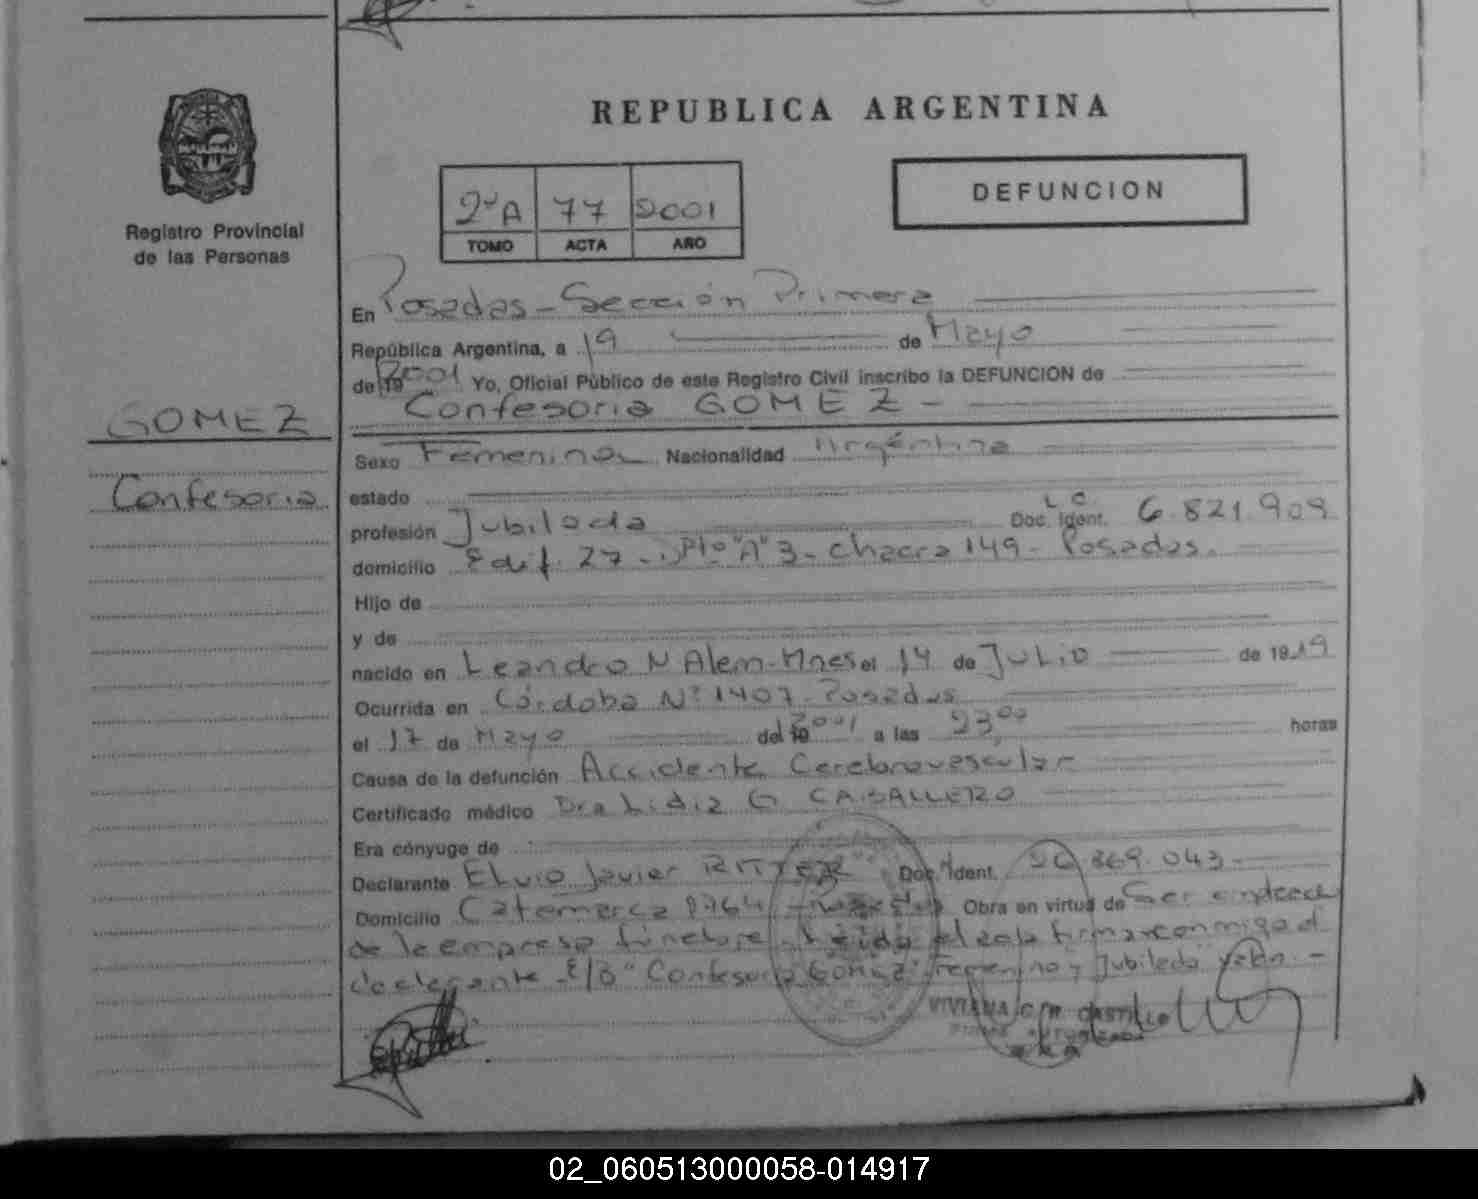 REPUBLICA ARGENTINA
Registro Provincial
de las Personas
2ºA 77 2001
TOMO ACTA AÑO
DEFUNCION
GOMEZ
Confesoria
En Posadas - Sección Primera
República Argentina, a 19 de Mayo
de 19 2001 Yo, Oficial Público de este Registro Civil inscribo la DEFUNCION de
Confesoria GOMEZ -
Sexo Femenino Nacionalidad Argentina
estado
profesión Jubilada Doc. Ident. L C. 6.821.909
domicilio Edif. 27 - Pto "A" 3 - chacra 149 - Posadas.
Hijo de
y de
nacido en Leandro N Alem - Mnes el 14 de Julio de 1919
Ocurrida en Córdoba Nº 1407 - Posadas
el 17 de Mayo del 19 2001 a las 23,00 horas
Causa de la defunción Accidente Cerebrovascular
Certificado médico Dra Lidia G. CABALLERO
Era cónyuge de
Declarante Elvio Javier RITTER Doc. Ident. 869.043 -
Domicilio Catamarca Obra en virtud de Ser empleado
de la empresa fúnebre. Leída el acta firma conmigo el
declarante - E/B "Confesoria Gomez" Femenino y Jubilada valen. -
VIVIANA CASTILLO
02_060513000058-014917